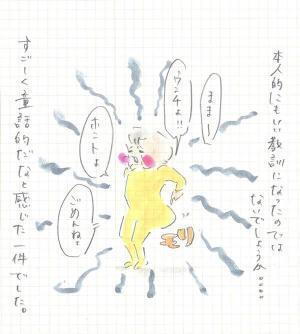 本人的にもいい教訓になったのでは
ないでしょうか…
ままー
ウンチよ!!
ホントよ
ごめんねぇ
すごーく童話的だなと感じた一件でした。